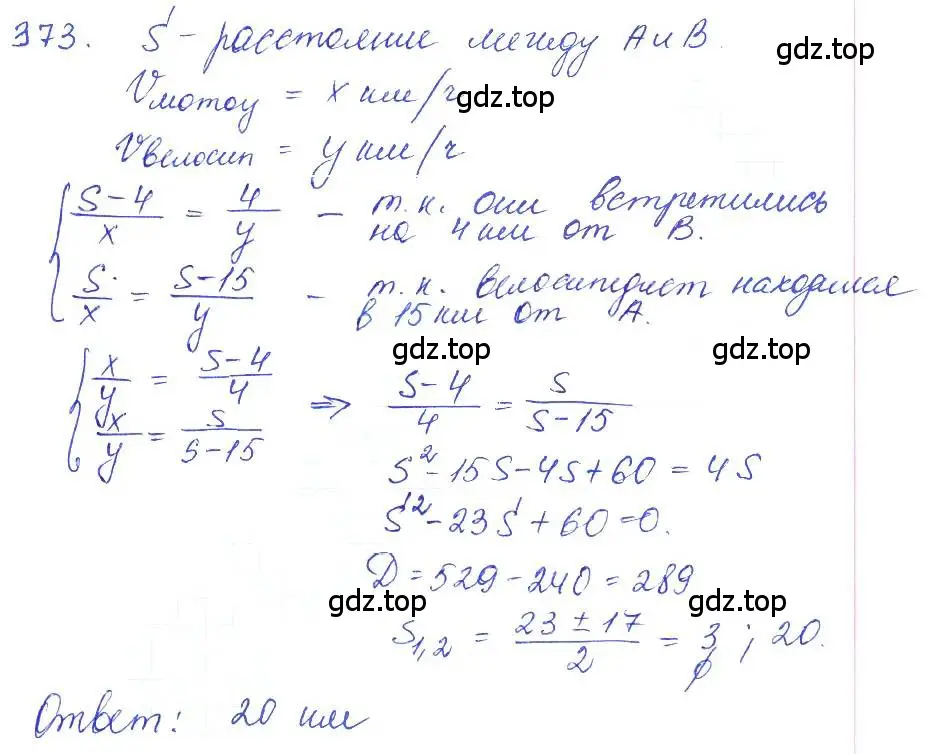 373. S - расстояние между А и В.
Vмотоц = x км/ч
gdz.top
gdz.top
Vвелосип = y км/ч
{ (S-4)/x = 4/y - т.к. они встретились
на 4 км от В.
S/x = (S-15)/y - т.к. велосипедист находился
в 15 км от А.
gdz.top
gdz.top
{ x/y = (S-4)/4
x/y = S/(S-15) ⇒ (S-4)/4 = S/(S-15)
S² - 15S - 4S + 60 = 4S
S² - 23S + 60 = 0.
D = 529 - 240 = 289
gdz.top
gdz.top
S1,2 = (23 ± 17)/2 = 3 ; 20.
Ответ: 20 км